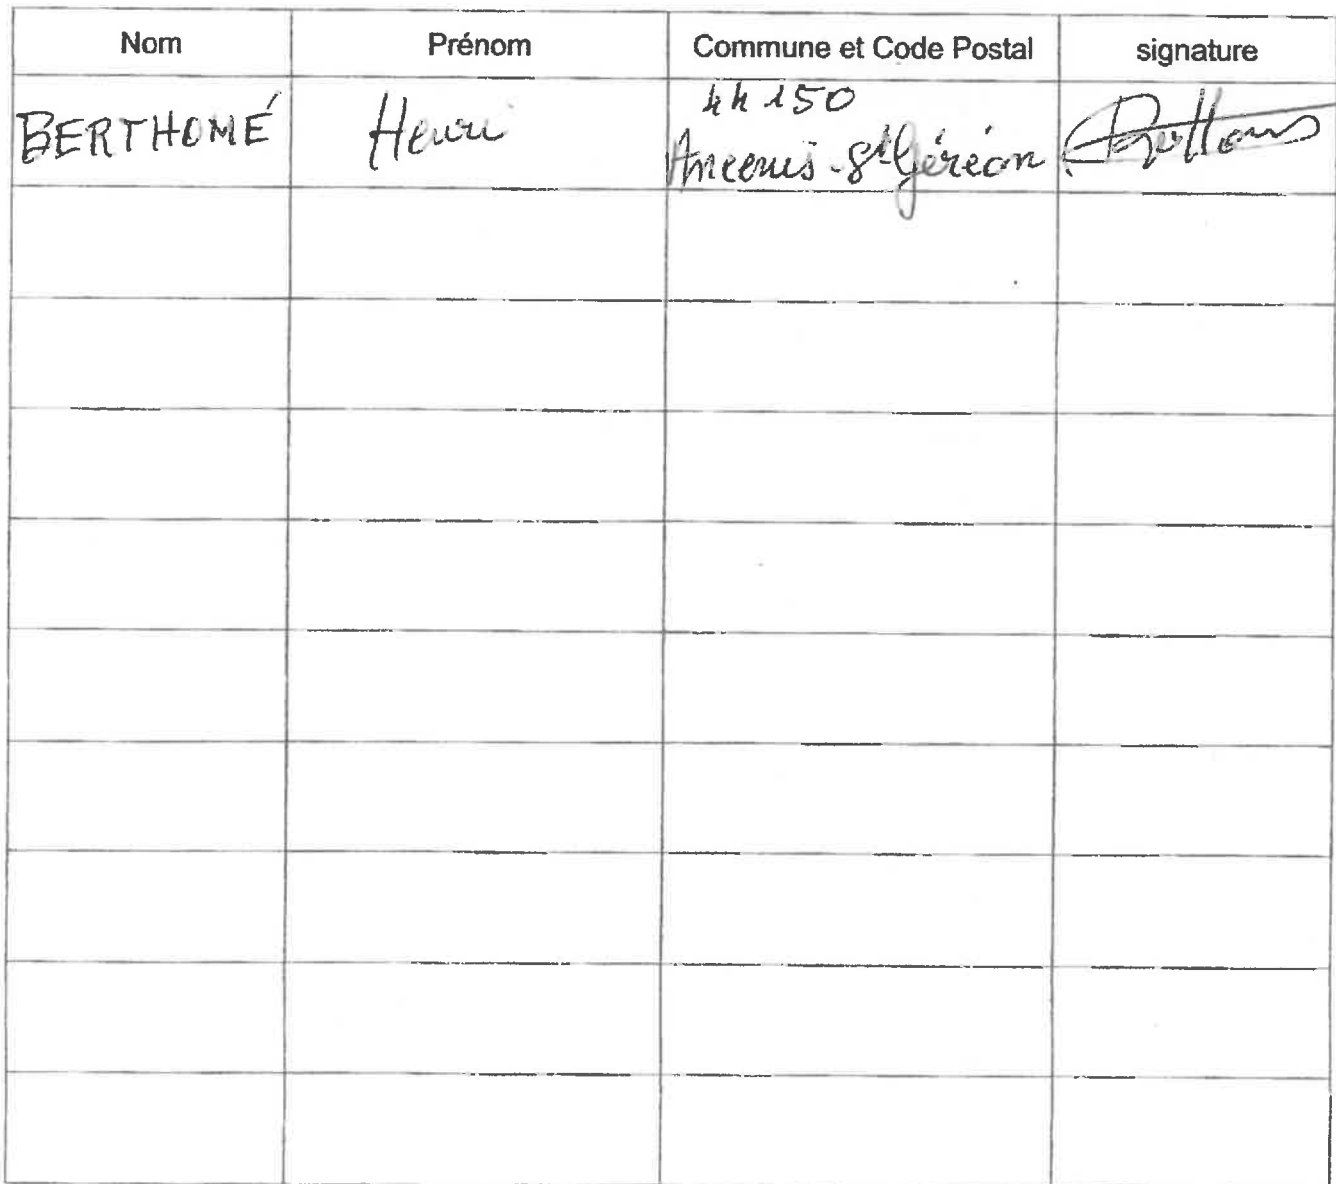 Nom Prénom Commune et Code Postal signature
BERTHOMÉ Henri 44150
Ancenis-St Géréon